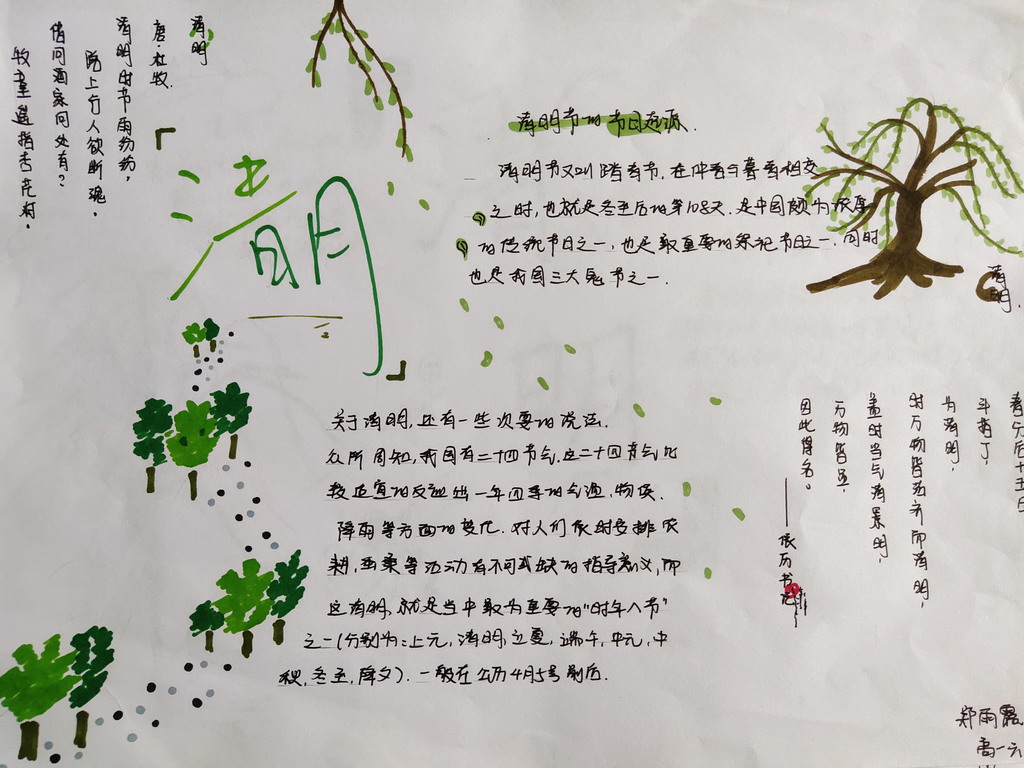 清明
唐·杜牧
清明时节雨纷纷,
路上行人欲断魂。
借问酒家何处有?
牧童遥指杏花村。
清明
清明节的节日起源
清明节又叫踏青节,在仲春与暮春相交
之时,也就是冬至后的第108天.是中国颇为
的传统节日之一,也是最重要的祭祀节日之一.同时
也是我国三大鬼节之一.
清明.
春分后十五日
斗指丁,
为清明,
时万物皆洁齐而清明,
盖时当气清景明,
万物皆显,
因此得名。
——历书
关于清明,还有一些次要的说法.
众所周知,我国有二十四节气.这二十四节气比
较适宜的反应出一年四季的气温,物候.
降雨等方面的变化.对人们依时安排农
耕,蚕桑等活动有不可或缺的指导意义,而
这清明,就是当中最为重要的"时年八节"
之一(分别为:上元,清明,立夏,端午,中元,中
秋,冬至,除夕).一般在公历4月5号前后.
郑雨露
高一六